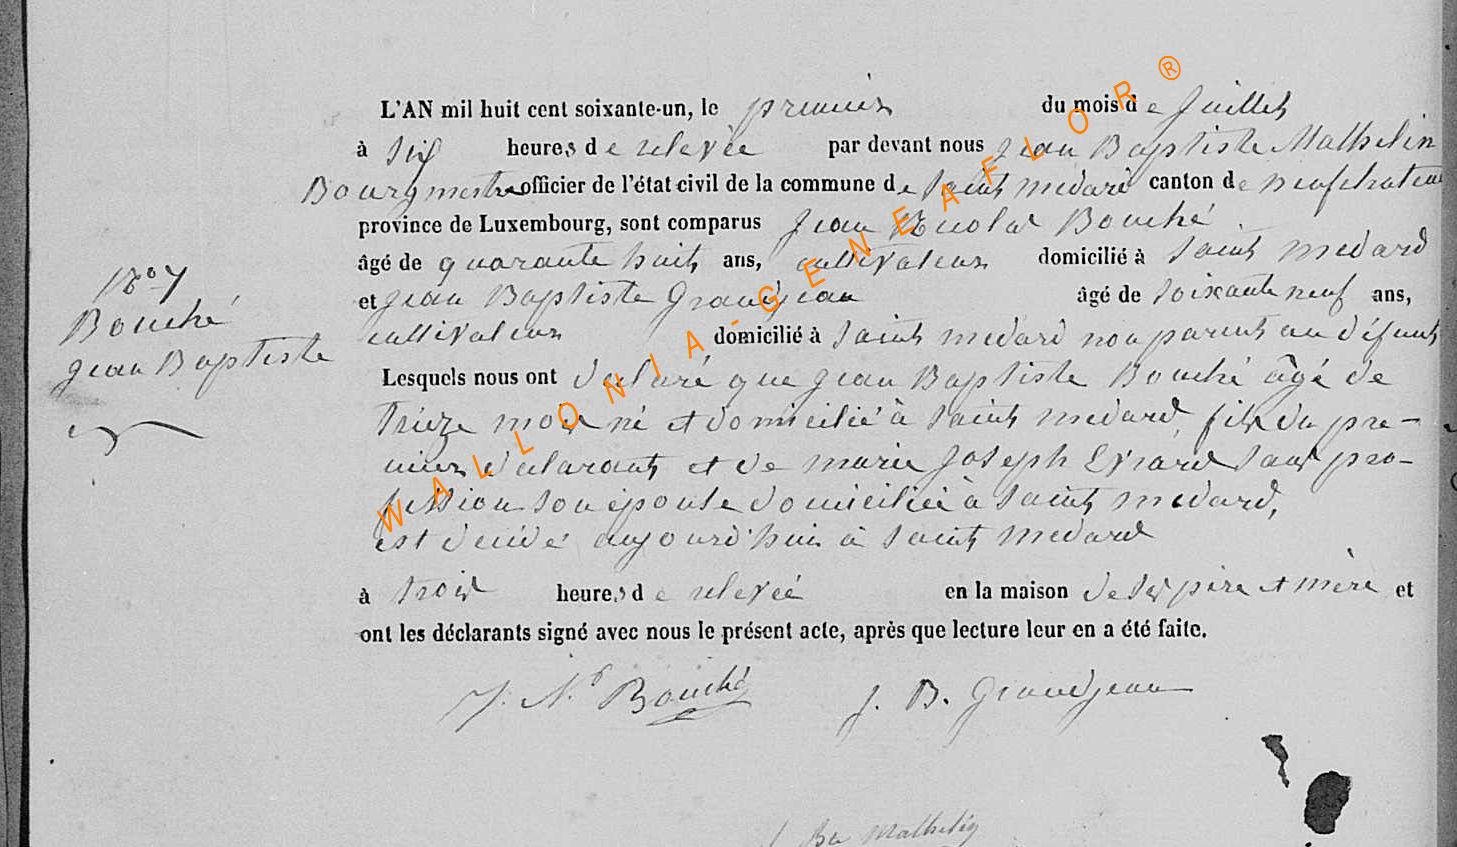 L'AN mil huit cent soixante-un, le premier du mois de Juillet
à six heures de relevée par devant nous Jean Baptiste Mathelin
Bourgmestre officier de l'état civil de la commune de Saint medard canton de neufchateau
province de Luxembourg, sont comparus Jean Nicolas Bouché
âgé de quarante huit ans, cultivateur domicilié à Saint medard
et Jean Baptiste Grandjean âgé de soixante neuf ans,
cultivateur domicilié à Saint medard non parent au défunt
Lesquels nous ont déclaré que Jean Baptiste Bouché âgé de
treize mois né et domicilié à Saint medard, fils du pre-
mier déclarant et de marie Joseph Evrard sans pro-
fession son épouse domiciliée à Saint medard,
est décédé aujourd'hui à Saint medard
à trois heures de relevée en la maison de ses père et mère et
ont les déclarants signé avec nous le présent acte, après que lecture leur en a été faite.
Nº 7
Bouché
Jean Baptiste
J. N. Bouché J. B. Grandjean
J Bte Mathelin
WALLONIA-GENEAFLOR®